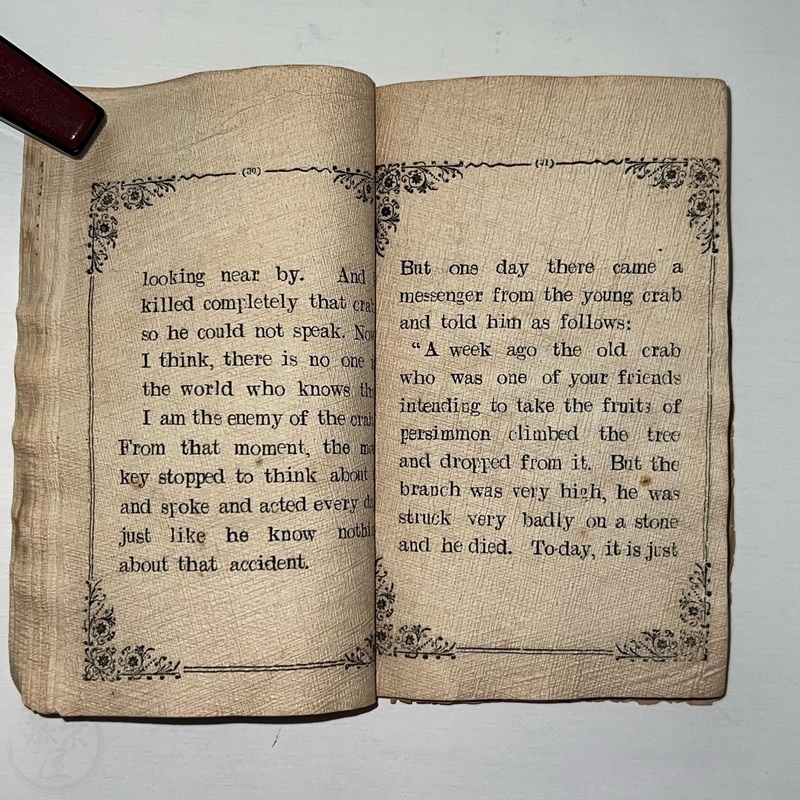 looking near by. And
killed completely that
so he could not speak.
I think, there is no one
the world who knows
I am the enemy of the
From that moment, the
key stopped to think about
and spoke and acted every
just like he know
about that accident.
But one day there came a
messenger from the young crab
and told him as follows:
“A week ago the old crab
who was one of your friends
intending to take the fruits of
persimmon climbed the tree
and dropped from it. But the
branch was very high, he was
struck very badly on a stone
and he died. To-day, it is just